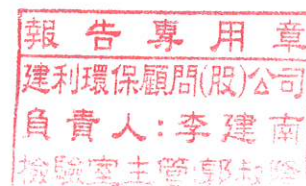 報告專用章
建利環保顧問(股)公司
負責人:李建南
檢驗室主管郭